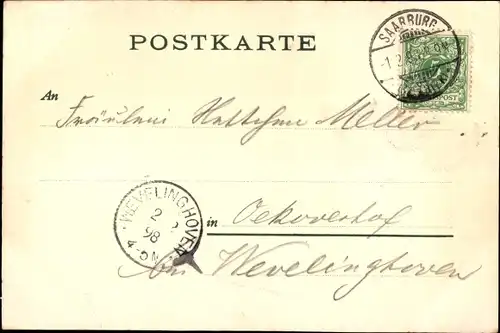 POSTKARTE
SAARBURG
An
Fräulein Hettchen Meller
WEVELINGHOVEN
2 2
98
4-5N
in Oekoverhof
Wevelinghoven